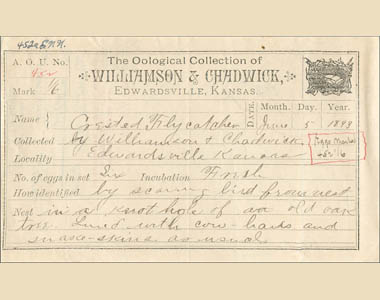 452a N.N.
A. O. U. No.
452
Mark 16
The Oological Collection of
WILLIAMSON & CHADWICK,
EDWARDSVILLE, KANSAS.
DATE. Month. Day. Year
June 5 1899
Name Crested Flycatcher
Collected by Williamson & Chadwick.
Locality Edwardsville Kansas
Eggs Marked
452 16
No. of eggs in set Six Incubation Fresh
How identified by scaring bird from nest
Nest in a knot hole of an old oak
tree Lined with cow-hairs and
snake-skins as usual.